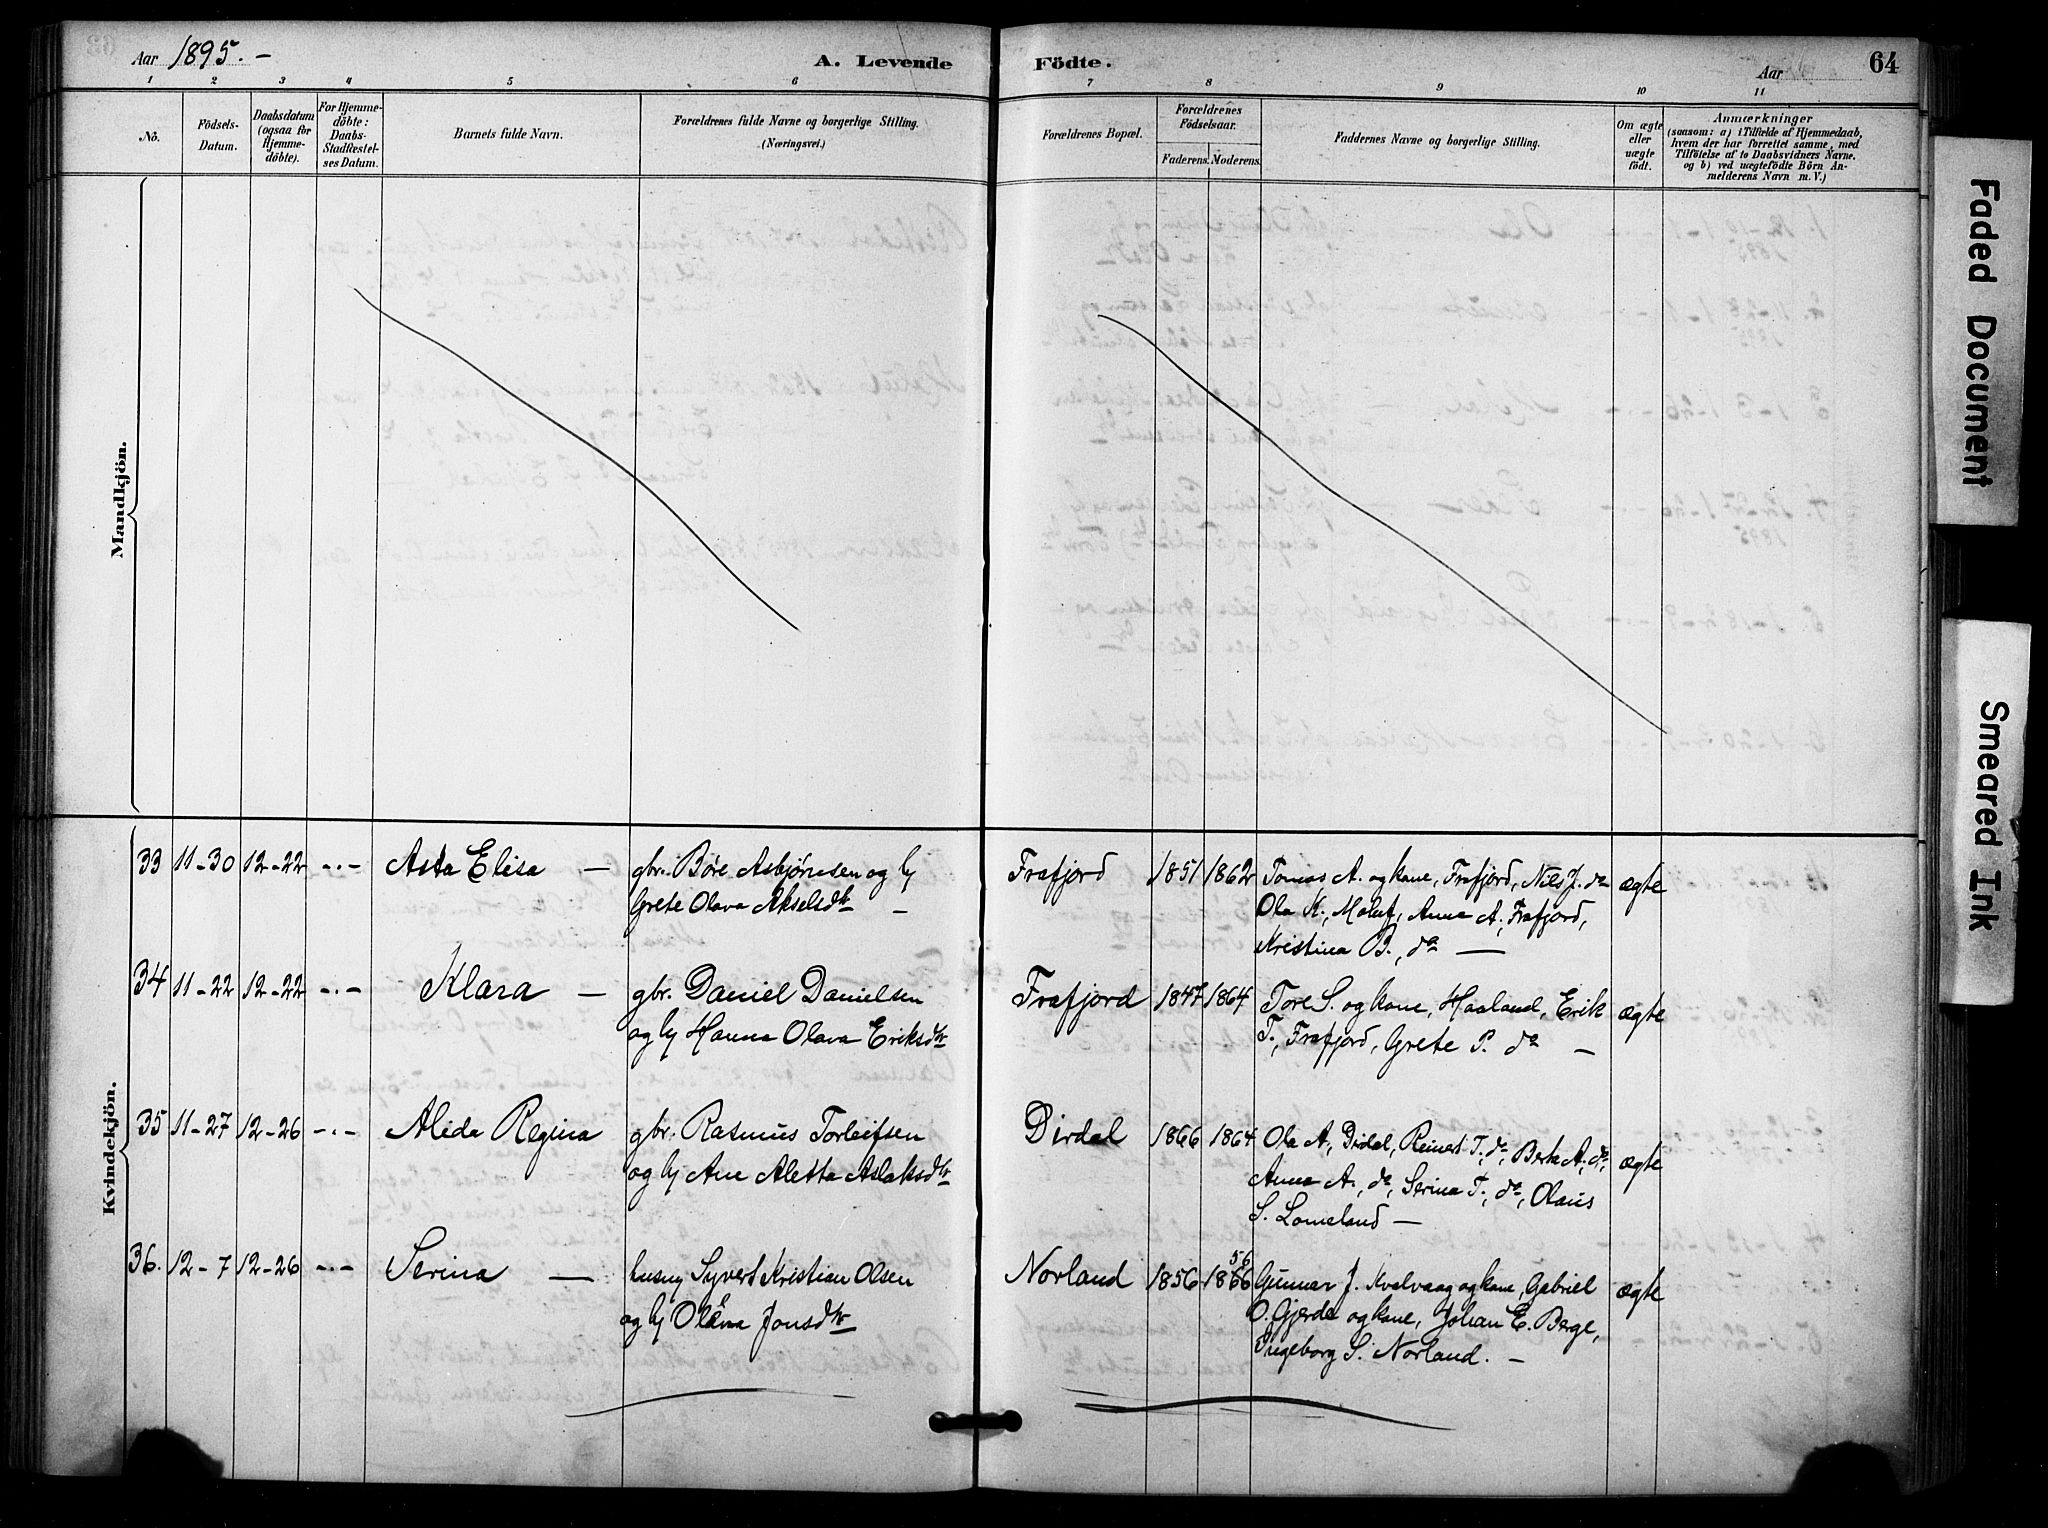 Aar 1895. -
A. Levende Födte.
Aar
64
1 2 3 4 5 6 7 8 9 10 11
No.
Födsels-
Datum.
Daabsdatum
(ogsaa for
Hjemme-
döbte).
For Hjemme-
döbte:
Daabs-
Stadfæstel-
ses Datum.
Barnets fulde Navn.
Forældrenes fulde Navne og borgerlige Stilling.
(Næringsvei.)
Forældrenes Bopæl.
Forældrenes
Födselsaar.
Faderens. Moderens.
Faddernes Navne og borgerlige Stilling.
Om ægte
eller
uægte
födt.
Anmærkninger
(saasom: a) i Tilfælde af Hjemmedaab,
hvem der har forrettet samme, med
Tilföielse af to Daabsvidners Navne.
og b) ved uægtefödte Börn An-
melderens Navn m. V.)
Mandkjön.
Kvindekjön.
33 11-30 12-22 -.- Asta Elisa — gbr. Børe Asbjørnsen og hj
Grete Olava Akselsdtr —
Frafjord 1851 1862 Tomas A. og kone, Frafjord, Nils J. do
Ola K., Molut, Anna A. Frafjord,
Kristina B., do —
ægte
34 11-22 12-22 -.- Klara — gbr. Daniel Danielsen
og hj Hanna Olava Eriksdtr
Frafjord 1847 1864 Tore S. og kone, Haaland, Erik
T., Frafjord, Grete P. do —
ægte
35 11-27 12-26 -.- Alida Regina gbr. Rasmus Torleifsen
og hj Ane Aletta Aslaksdtr
Dirdal 1866 1864 Ola A., Dirdal, Reinert T., do, Berte A., do,
Anna A., do, Serina T., do, Olaus
S. Lomeland —
ægte
36. 12-7 12-26 -.- Serina — husm Syvert Kristian Olsen
og hj Olena Jonsdtr
Norland 1856 1866 56 Gunnar J. Kvalvaag og kone, Gabriel
O. Gjerde og kone, Johan E. Berge,
Ingeborg S. Norland. —
ægte
Faded Document
Smeared Ink